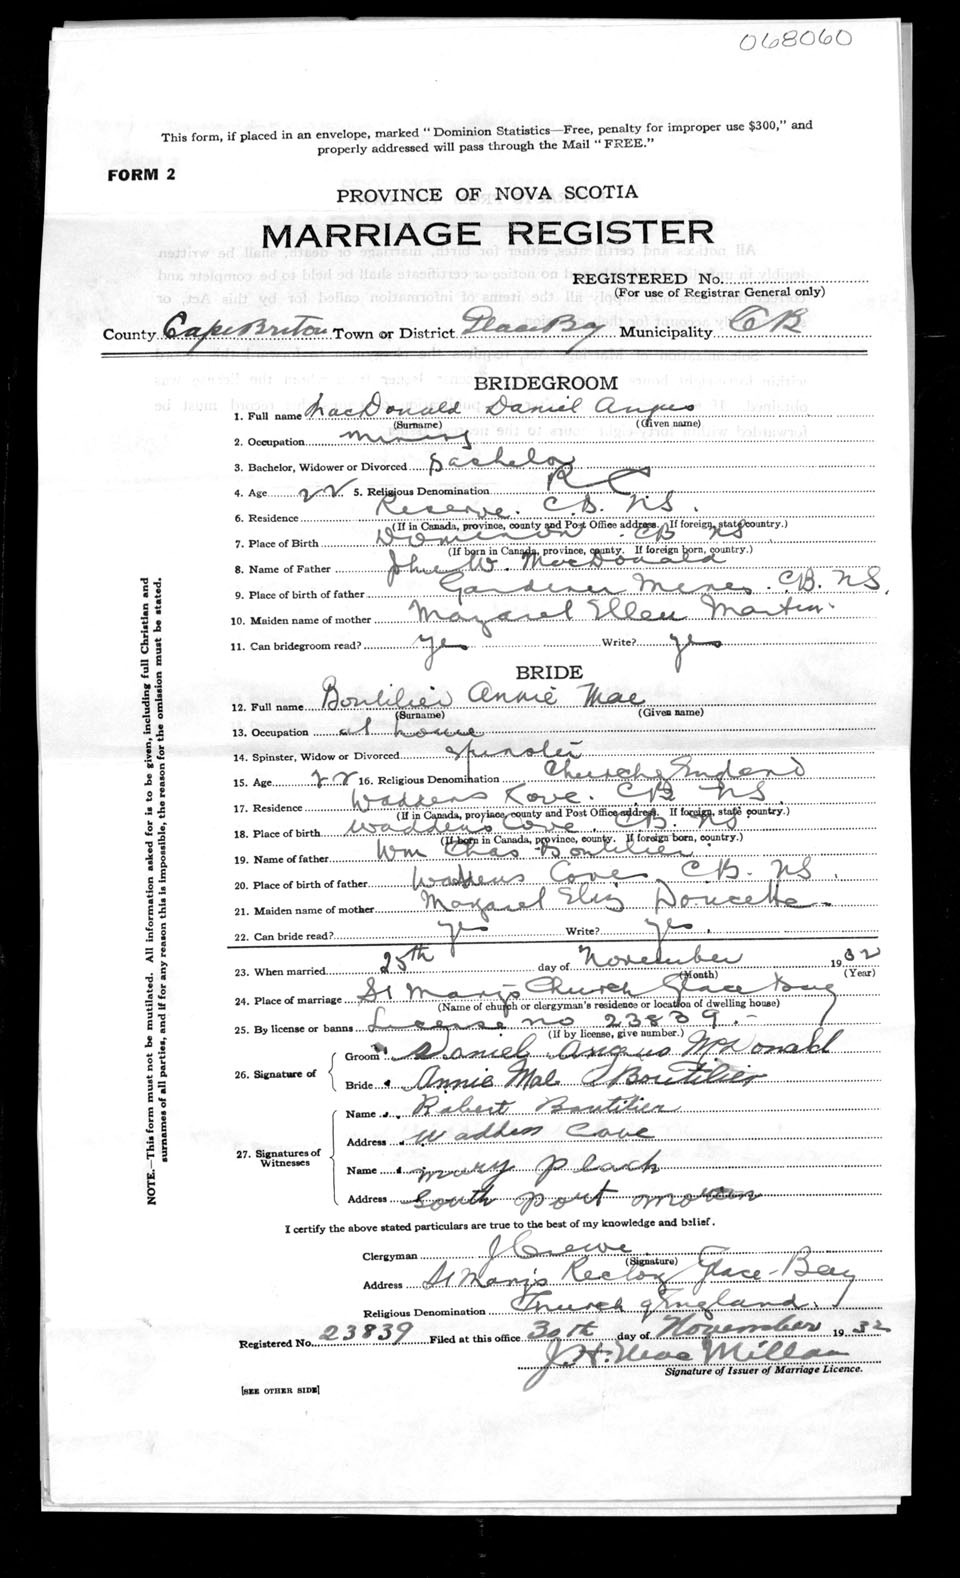 068060
This form, if placed in an envelope, marked "Dominion Statistics—Free, penalty for improper use $300," and
properly addressed will pass through the Mail "FREE."
FORM 2
PROVINCE OF NOVA SCOTIA
MARRIAGE REGISTER
REGISTERED No.
(For use of Registrar General only)
County Cape Briton Town or District Glace Bay Municipality C B
BRIDEGROOM
1. Full name MacDonald Daniel Angus
(Surname) (Given name)
2. Occupation mining
3. Bachelor, Widower or Divorced Bachelor
4. Age 22 5. Religious Denomination R C
6. Residence Reserve. C.B. N.S.
(If in Canada, province, county and Post Office address. If foreign, state country.)
7. Place of Birth Dominion CB NS
(If born in Canada, province, county. If foreign born, country.)
8. Name of Father John W. MacDonald
9. Place of birth of father Gardiner Mines. C.B. N.S.
10. Maiden name of mother Margaret Ellen Martin.
11. Can bridegroom read? yes Write? yes
BRIDE
12. Full name Boutilier Annie Mae
(Surname) (Given name)
13. Occupation at home
14. Spinster, Widow or Divorced Spinster
15. Age 22 16. Religious Denomination Church of England
17. Residence Waddens Kove. CB NS.
(If in Canada, province, county and Post Office address. If foreign, state country.)
18. Place of birth Waddens Cove. CB. NS.
(If born in Canada, province, county. If foreign born, country.)
19. Name of father Wm Chas Boutilier
20. Place of birth of father Waddens Cove. C.B. N.S.
21. Maiden name of mother Margaret Eliz Doucette
22. Can bride read? yes Write? yes.
23. When married 25th day of November 1932
(Month) (Year)
24. Place of marriage St Mary's Church Glace Bay
(Name of church or clergyman's residence or location of dwelling house)
25. By license or banns License no 23839.
(If by license, give number.)
26. Signature of
Groom Daniel Angus McDonald
Bride Annie Mae Boutilier
27. Signatures of Witnesses
Name Robert Boutilier
Address Wadden Cove
Name mary Peach
Address South port morien
I certify the above stated particulars are true to the best of my knowledge and belief.
Clergyman J Crewe
(Signature)
Address St Mary's Rectory Glace-Bay
Religious Denomination Church of England.
Registered No. 23839 Filed at this office 30th day of November 1932
J. H. MacMillan
Signature of Issuer of Marriage Licence.
[SEE OTHER SIDE]
NOTE.—This form must not be mutilated. All information asked for is to be given, including full Christian and
surnames of all parties, and if for any reason this is impossible, the reason for the omission must be stated.